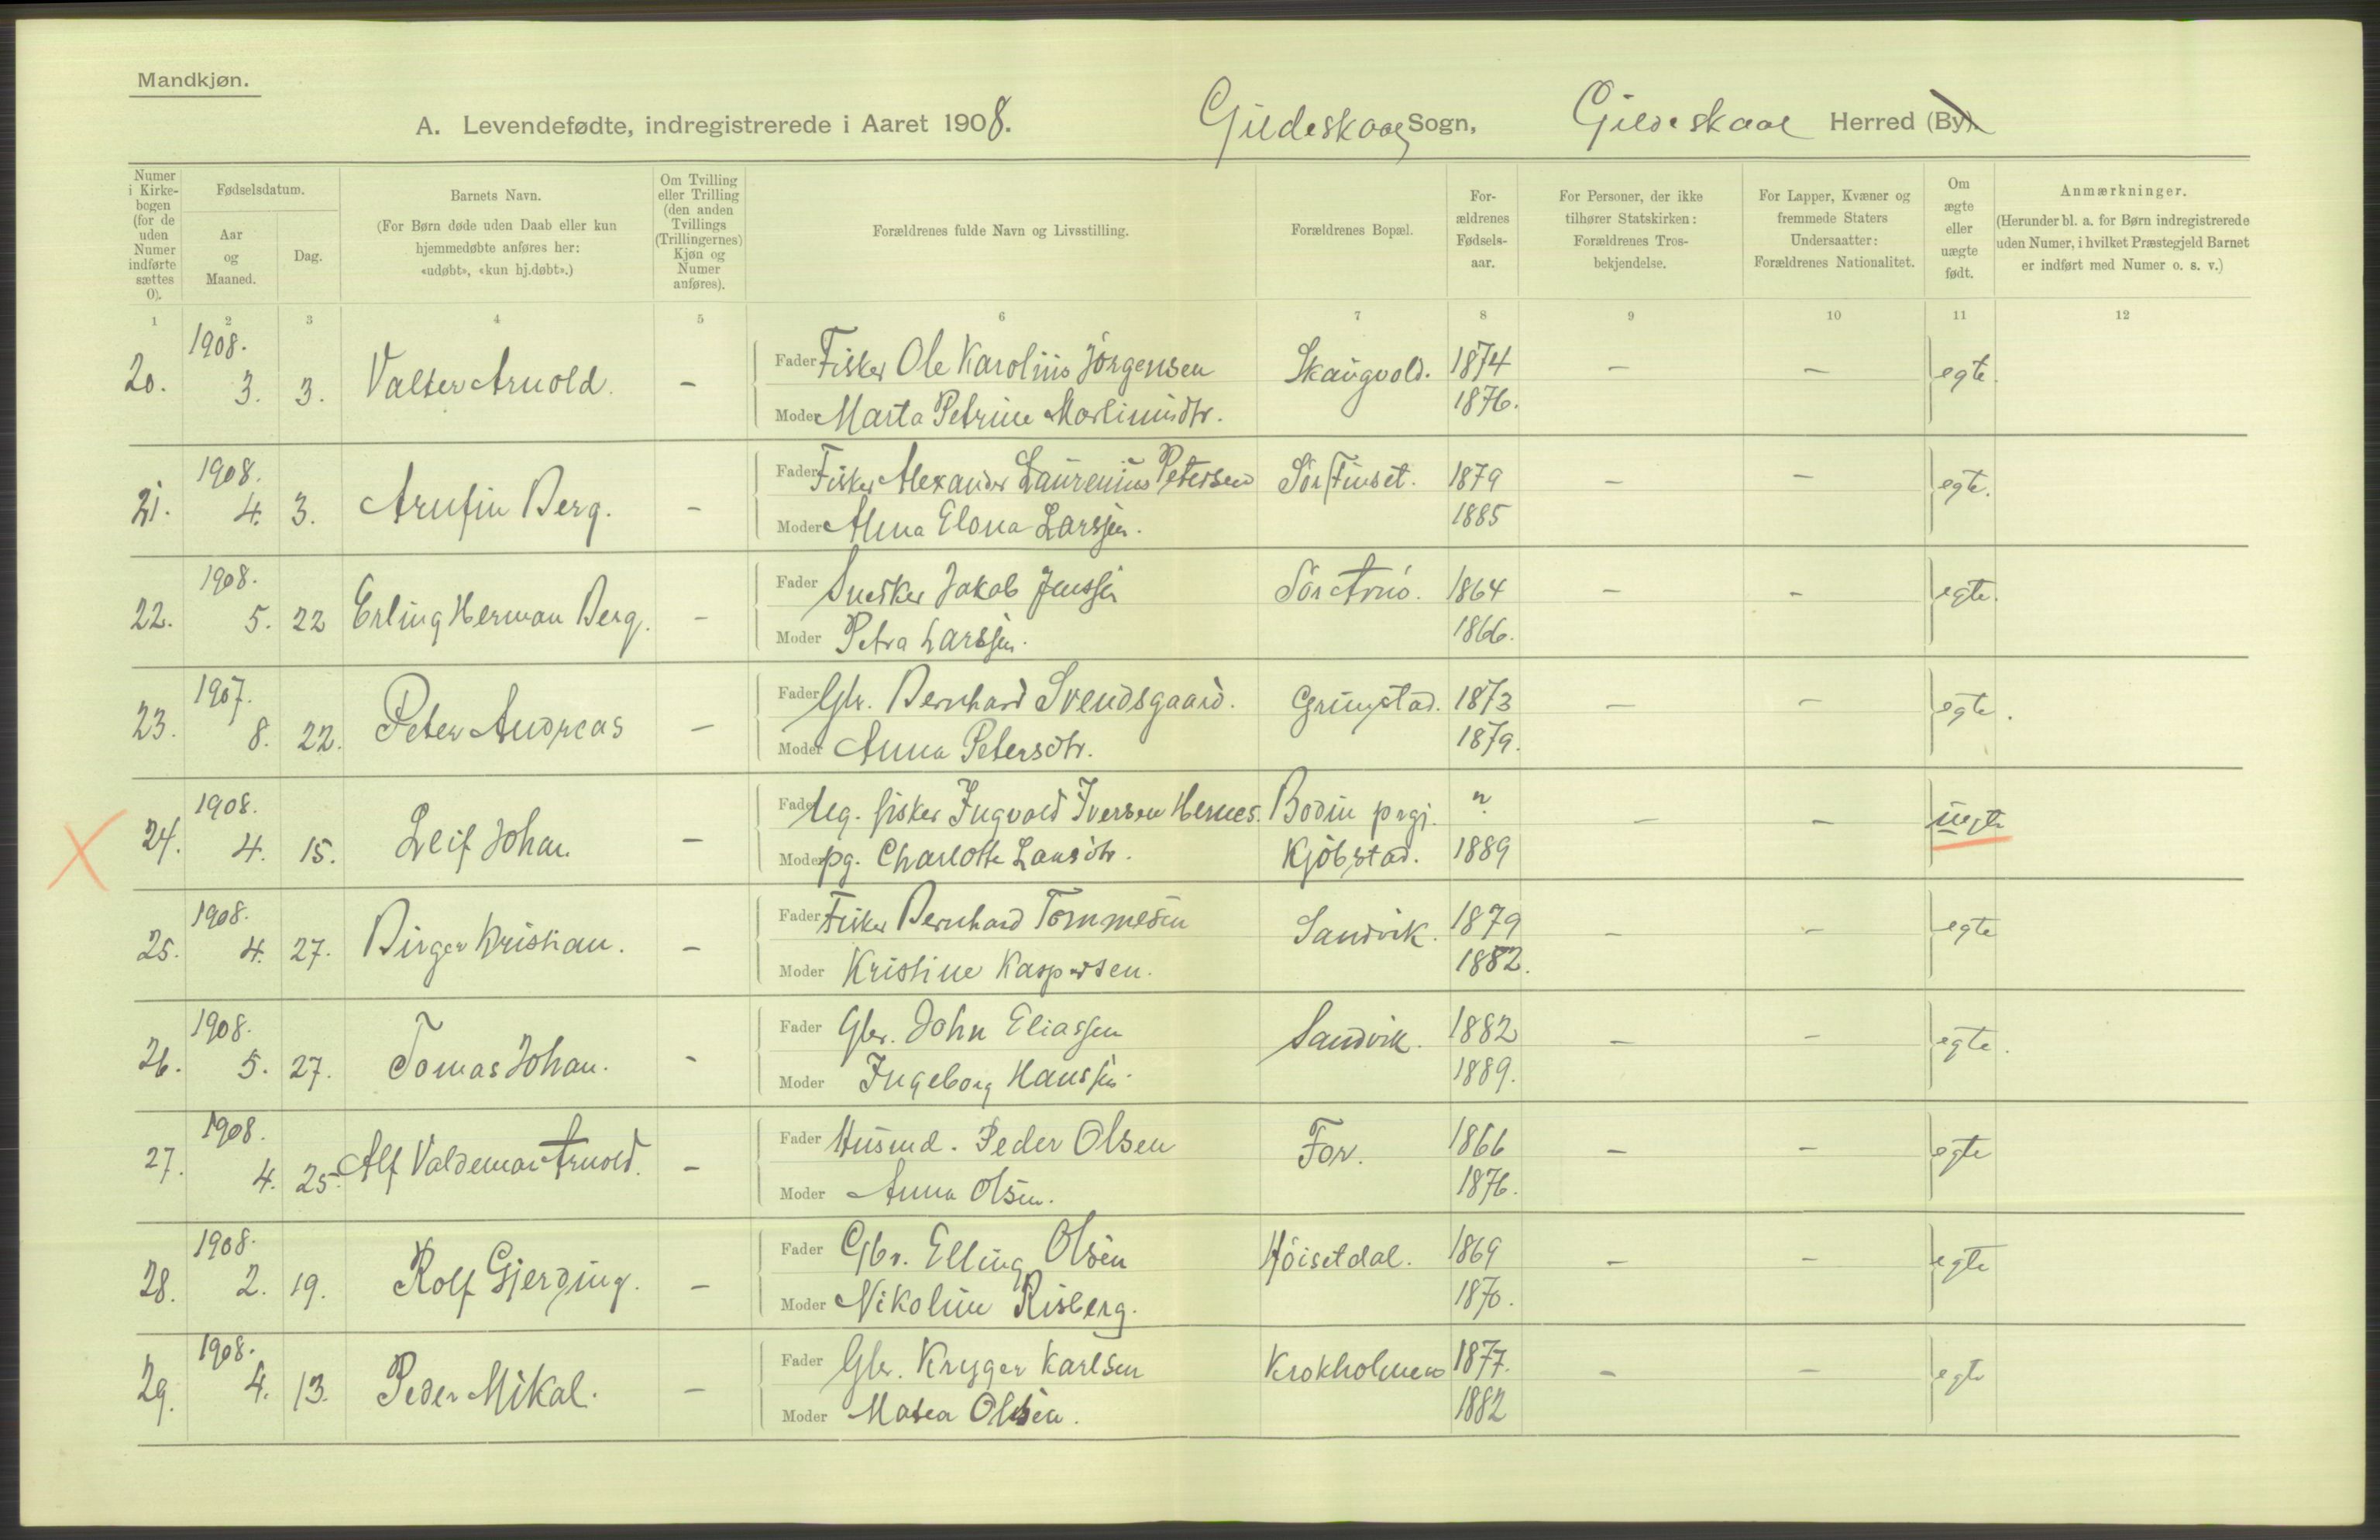 Mandkjøn.
A. Levendefødte, indregistrerede i Aaret 1908. Gildeskaal Sogn, Gildeskaal Herred (By).
Numer i Kirkebogen (for de uden Numer indførte sættes 0).
Fødselsdatum.
Aar og Maaned.
Dag.
Barnets Navn.
(For Børn døde uden Daab eller kun hjemmedøbte anføres her: «udøbt», «kun hj.døbt».)
Om Tvilling eller Trilling (den anden Tvillings (Trillingernes) Kjøn og Numer anføres).
Forældrenes fulde Navn og Livsstilling.
Forældrenes Bopæl.
Forældrenes Fødselsaar.
For Personer, der ikke tilhører Statskirken: Forældrenes Trosbekjendelse.
For Lapper, Kvæner og fremmede Staters Undersaatter: Forældrenes Nationalitet.
Om ægte eller uægte født.
Anmærkninger.
(Herunder bl. a. for Børn indregistrerede uden Numer, i hvilket Præstegjeld Barnet er indført med Numer o. s. v.)
1 2 3 4 5 6 7 8 9 10 11 12
20. 1908. 3. 3. Valter Arnold. - Fader Fisker Ole Karolius Jörgensen Skaugvold. 1874 - - egte.
Moder Marta Petrine Martinusdtr. 1876.
21. 1908. 4. 3. Arnfin Berg. - Fader Fisker Alexander Laurenius Petersen Sör Finset. 1879 - - egte.
Moder Alma Elona Larssen. 1885
22. 1908. 5. 22 Erling Herman Berg. - Fader Snedker Jakob Jenssen Sör Arnö. 1864 - - egte.
Moder Petra Larssen. 1866.
23. 1907. 8. 22. Peter Andreas - Fader Gbr. Bernhard Svendsgaard. Grimstad. 1873 - - egte.
Moder Anna Petersdtr. 1879.
24. 1908. 4. 15. Leif Johan. - Fader Ug. fisker Ingvald Iversen Hernes. Bodin prgj. ? - - uegte
Moder pg. Charlotte Larsdtr. Kjöbstad. 1889
25. 1908. 4. 27. Birger Kristian. - Fader Fisker Bernhard Tommesen Sandvik. 1879 - - egte
Moder Kristine Kaspersen. 1882.
26. 1908. 5. 27. Tomas Johan. - Fader Gbr. John Eliassen Sandvik. 1882 - - egte.
Moder Ingeborg Hanssen. 1889.
27. 1908. 4. 25. Alf Valdemar Arnold. - Fader Husmd. Peder Olsen For. 1866 - - egte
Moder Anna Olsen. 1876.
28. 1908. 2. 19. Rolf Gjerding. - Fader Gbr. Elling Olsen Höisetdal. 1869 - - egte
Moder Nikoline Risberg. 1870.
29. 1908. 4. 13. Peder Mikal. - Fader Gbr. Kryger Karlsen Krokholmen 1877. - - egte
Moder Matea Olsen. 1882